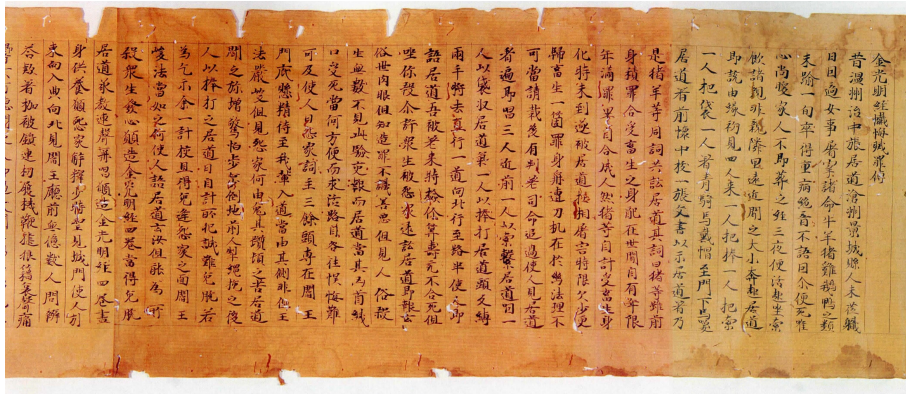 金光明經懺悔滅罪傳
昔溫州治中張居道滄州景城縣人未蒞職
日因適女事屠宰諸命牛羊猪雞鵝鴨之類
未踰一旬卒得重病絕音不語因尒便死唯
心尚暖家人不即葬之經三夜便活起坐索
飲諸親非親隣里遠近聞之大小奔赴居道
即說由緣初見四人來一人把棒一人把索
一人把袋一人著青騎馬戴帽至門下馬喚
居道著前懷中拔一張文書以示居道看乃
是猪羊等同詞共訟居道其詞曰猪等雖前
身積罪合受畜生之身配在世間自有年限
年滿罪畢自合成人然猪等自計受畜生身
化時未到遂被居道枉相屠害時限欠少更
歸畜生一箇罪身再遭刀机在於幽法理不
可當請裁後有判差司命追過使人見居道
看遍即唱三人近前一人以索繫居道咽一
人以袋收居道氣一人以棒打居道頭反縛
兩手將去直行一道向北行至路半使人即
語居道吾被差來時檢你算壽元不合死但
坐你殺尒許眾生被怨家逮訟居道即報云
俗世肉眼但知造罪不識善惡但見人俗殺
生無數不見此驗交報而居道當其為首緘
口受死當何方便而求活路自咎往悞悔難
可及使人曰怨家詞主三餘頭專在閻王
門底懸精待至我輩入道當由其側非但王
法嚴峻但見怨家何由免其躓頓之苦居道
聞之弥增驚怕步步倒地前人掣繩挽之後
人以棒打之居道曰自計所犯誠難免脫若
為乞示余一計校且得免逢怨家之面閻王
峻法當如之何使人語居道云汝但能為所
殺眾生發心願造金光明經四卷當得免脫
居道承教連聲再唱願造金光明經四卷盡
身供養願怨家解釋少時望見城門使人引
東向入曲向北見閻王廳前無億數人問辯
答款者枷被鎖遭杻械鞭撻狼藉哀聲痛